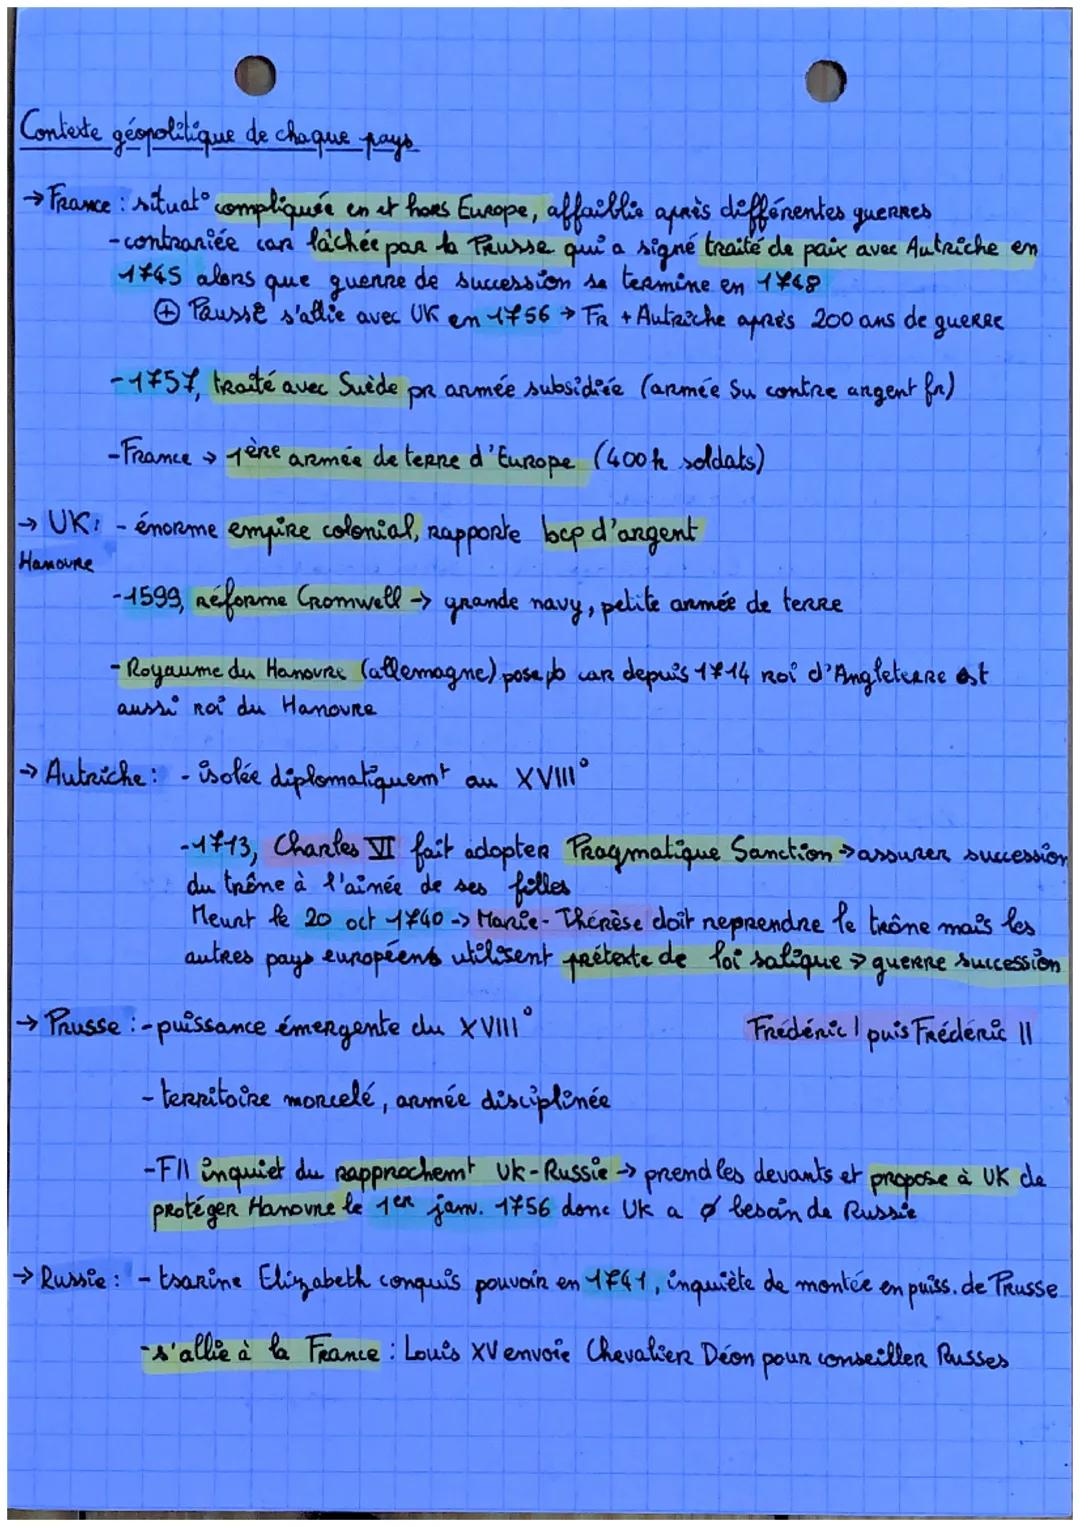 Contexte géopolitique de chaque pays
→ France : situat° compliquée en et hors Europe, affaiblie après différentes guerres
- contrariée car lâchée par la Prusse qui a signé traité de paix avec Autriche en
1745 alors que guerre de succession se termine en 1748
⊕ Prusse s'allie avec UK en 1756 → FR + Autriche après 200 ans de guerre
- 1757, traité avec Suède pr armée subsidiée (armée Su contre argent fr)
- France → 1ère armée de terre d'Europe (400k soldats)
→ UK : - énorme empire colonial, rapporte bcp d'argent
Hanovre
- 1599, réforme Cromwell → grande navy, petite armée de terre
- Royaume du Hanovre (allemagne) pose pb car depuis 1714 roi d'Angleterre est
aussi roi du Hanovre
→ Autriche : - isolée diplomatiquemt au XVIII°
- 1713, Charles VI fait adopter Pragmatique Sanction → assurer succession
du trône à l'aînée de ses filles
Meurt le 20 oct 1740 → Marie-Thérèse doit reprendre le trône mais les
autres pays européens utilisent prétexte de loi salique → guerre succession
→ Prusse : - puissance émergente du XVIII° Frédéric I puis Frédéric II
- territoire morcelé, armée disciplinée
- FII inquiet du rapprochemt UK-Russie → prend les devants et propose à UK de
protéger Hanovre le 1er janv. 1756 donc UK a ø besoin de Russie
→ Russie : - tsarine Elizabeth conquis pouvoir en 1741, inquiète de montée en puiss. de Prusse
- s'allie à la France : Louis XV envoie Chevalier Déon pour conseiller Russes